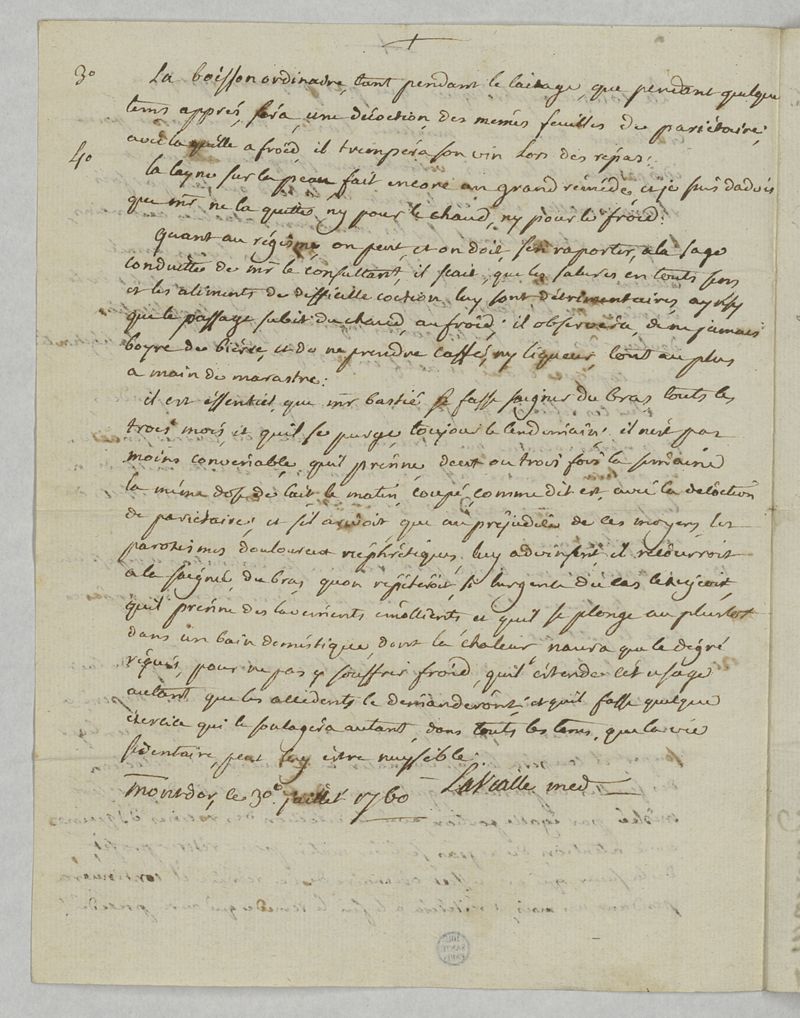 3º La boisson ordinaire, tant pendant le laitage, que pendant quelque
tems apprés, sera, une décoction, des memes feuilles de pariétaire,
avec laquelle a froid il trempera son vin lors des repas:
4º la layne sur la peau fait encore un grand remède, et je suis dadvis
que mr ne la quitte, ny pour le chaud, ny pour le froid:
Quant au régime, on peut, et on doit, s'en raporter, a la sage
conduitte de mr le consultant, il scait, que les salures, en touts sens
et les aliments de difficille coction, luy sont détrimentaires, aynsy
que le passage subit du chaud, au froid; il observera, de ne jamais
boyre de bière, et de ne prendre caffés, ny liqueur, tout au plus
a main de marastre:
il est éssentiel, que mr bastié se fasse saigner du bras touts les
trois mois, et quil se purge toujour le lendemain; il n'est pas
moins convenable, quil prenne deux ou trois fois la semaine
la même dose de lait le matin, coupé, comme dit est, avec la décoction
de pariétaire; et s'il arrivoit que au préjudice de ces moyens, les
paroxismes douloureux néphrétiques, luy advinsent, il recourroit
a la saignée, du bras, quon répéteroit, si lurgence du cas lexigeoit,
quil prenne des lavements émollients et quil se plonge au plustost
dans un bain domestique, dont la chaleur naura que le dégré
réquis, pour ne pas y souffrir froid, quil étende cet usage
autant que les accidents le demanderont; et quil fasse quelque
éxercice qui le soulagera autant, dans touts les tems, que la vie
sédentaire, peut luy estre nuysible:
montdor, le 30e juillet 1760 Lavialle med